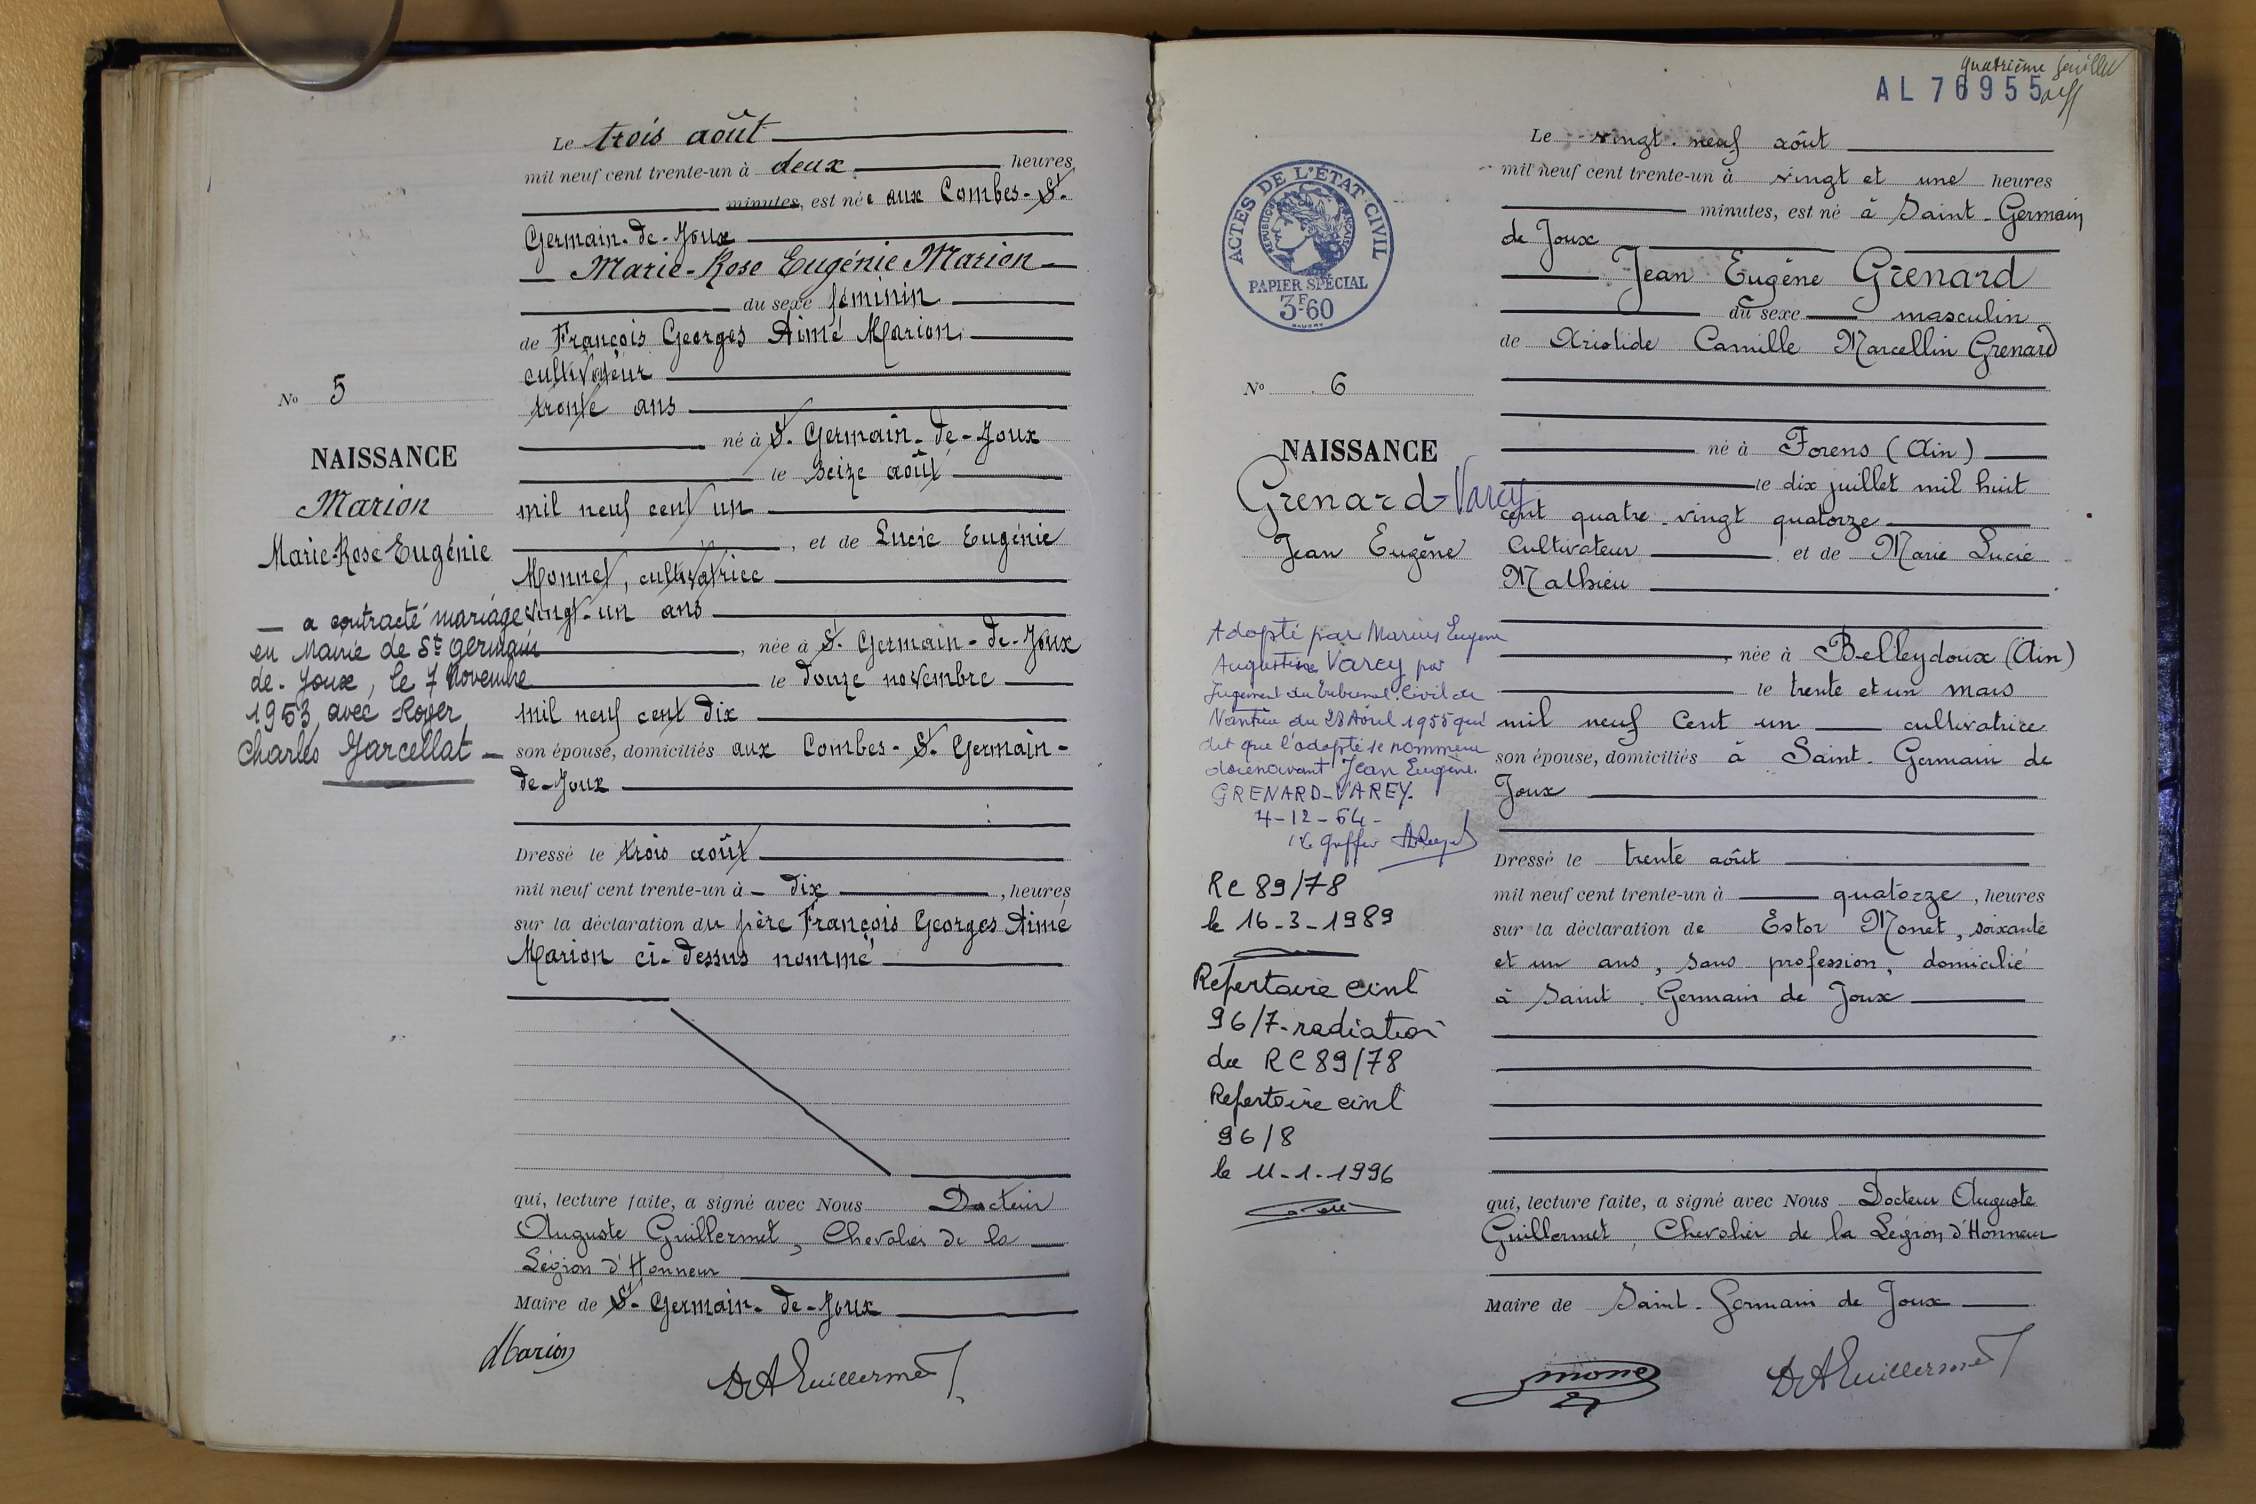 Le trois août
mil neuf cent trente-un à deux heures
minutes, est née aux Combes-St.
Germain-de-Joux
Marie-Rose Eugénie Marion
du sexe féminin
de François Georges Aimé Marion
cultivateur
trente ans
né à St. Germain-de-Joux
le seize août
mil neuf cent un
, et de Lucie Eugénie
Monnet, cultivatrice
vingt-un ans
, née à St. Germain-de-Joux
le douze novembre
mil neuf cent dix
son épouse, domiciliés aux Combes-St. Germain-
de-Joux
Dressé le trois août
mil neuf cent trente-un à dix , heures
sur la déclaration du père François Georges Aimé
Marion ci-dessus nommé
qui, lecture faite, a signé avec Nous Docteur
Auguste Guillermet, Chevalier de la
Légion d'Honneur
Maire de St. Germain-de-Joux
Marion
Dr A Guillermet
No 5
NAISSANCE
Marion
Marie-Rose Eugénie
— a contracté mariage
en Mairie de St Germain
de-Joux, le 7 Novembre
1953, avec Roger
Charles Jarcellat —
quatrième feuillet
AL 76955
ACTES DE L'ÉTAT CIVIL
RÉPUBLIQUE FRANÇAISE
PAPIER SPÉCIAL
3F60
Le vingt-neuf août
mil neuf cent trente-un à vingt et une heures
minutes, est né à Saint-Germain
de Joux
Jean Eugène Grenard
du sexe masculin
de Aristide Camille Marcellin Grenard
né à Forens (Ain)
le dix juillet mil huit
cent quatre-vingt quatorze
Cultivateur et de Marie Lucie
Mathieu
, née à Belleydoux (Ain)
le trente et un mars
mil neuf cent un cultivatrice
son épouse, domiciliés à Saint-Germain de
Joux
Dressé le trente août
mil neuf cent trente-un à quatorze , heures
sur la déclaration de Estor Monet, soixante
et un ans, sans profession, domicilié
à Saint-Germain de Joux
qui, lecture faite, a signé avec Nous Docteur Auguste
Guillermet, Chevalier de la Légion d'Honneur
Maire de Saint-Germain de Joux
Dr A Guillermet
No 6
NAISSANCE
Grenard-Varey
Jean Eugène
Adopté par Marius Eugène
Augustine Varey par
Jugement du Tribunal Civil de
Nantua du 28 Avril 1955 qui
dit que l'adopté se nommera
dorénavant Jean Eugène
GRENARD-VAREY.
4-12-64-
RC 89/78
le 16-3-1989
Répertoire civil
96/7-radiation
du RC 89/78
Répertoire civil
96/8
le 11-1-1996